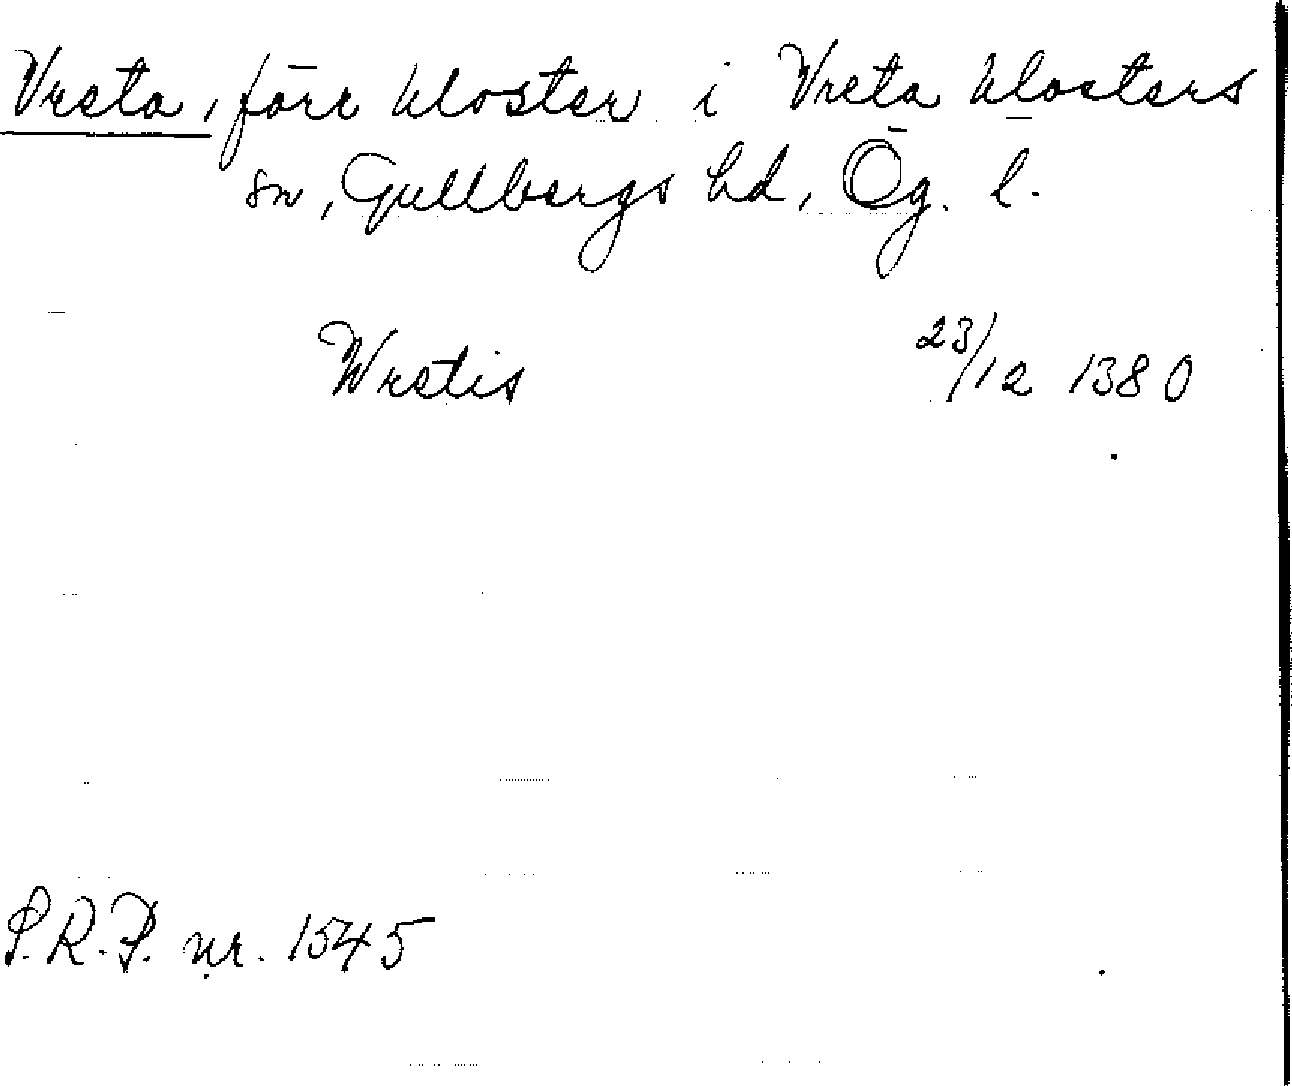 Vreta, förr kloster i Vreta klosters
sn, Gullbergs hd, Ög. l.
Wretis 23/12 1380
S.R.P. nr. 1545